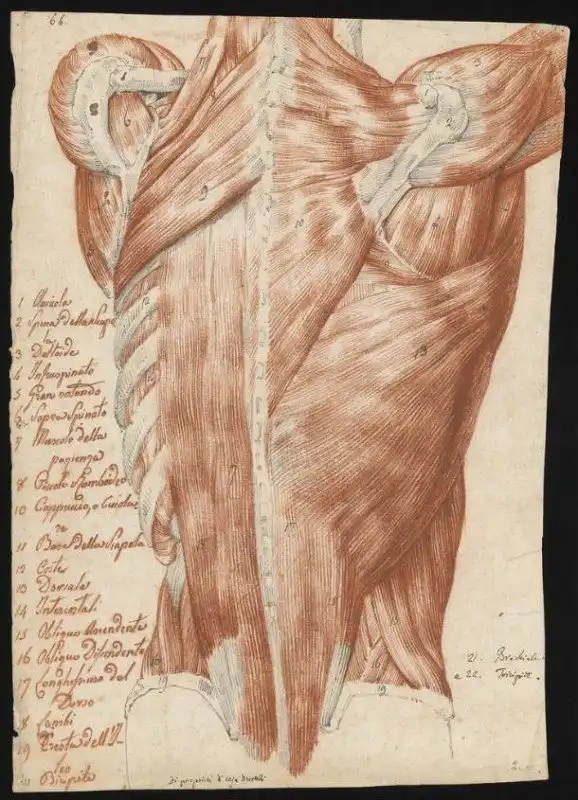 66.
1 Clavicola
2 Spina della Scapo
3 Deltoide
4 Infraspinato
5 Gran rotondo
6 Sopra Spinato
7 Muscolo della
pazienza
8 Piccolo Romboideo
10 Cappuccio, o Cucolar
re
11 Base della Scapola
12 Coste
13 Dorsale
14 Intercostali
15 Obliquo Ascendente
16 Obliquo Discendente
17 Longhissimo del
Dorso
18 Lombi
19 Cresta dell' I-
leo
20 Bicipite
21. Brachiale
e 22. Tricipite.
Di proprietà di